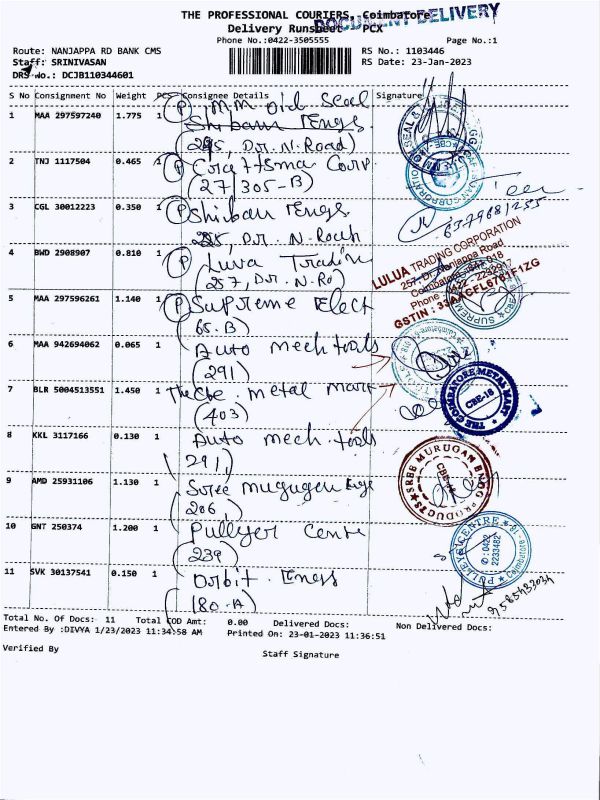 THE PROFESSIONAL COURIERS, Coimbatore
DOCUMENT DELIVERY
Delivery Runsheet - PCX
Phone No.:0422-3505555
Page No.:1
Route: NANJAPPA RD BANK CMS
RS No.: 1103446
Staff: SRINIVASAN
RS Date: 23-Jan-2023
DRS No.: DCJB110344601
S No Consignment No Weight PCS Consignee Details Signature
1 MAA 297597240 1.775 1 (P) M.M oil Seal
Shiban Engs.
(295, Dr. N. Road)
2 TNJ 1117504 0.465 1 (P)
(27/305-B)
3 CGL 30012223 0.350 1 (P) Shiban Engs.
6379681255
4 BWD 2908907 0.810 1 (P) Luva
(257, Dr. N. Ro)
LULUA TRADING CORPORATION
257, Dr. Nanjappa Road
Coimbatore - 641 018
Phone : 0422 - 2232917
5 MAA 297596261 1.140 1 (P) Supreme Elect
(65.B)
6 MAA 942694062 0.065 1 Auto mech tools
(291)
7 BLR 5004513551 1.450 1 The Cbe. metal mart
(403)
THE COIMBATORE METAL MART
CBE-18
8 KKL 3117166 0.130 1 Auto mech. tools
(291,)
9 AMD 25931106 1.130 1 Sree mugugen
(206,)
SREE MURUGAN ENGG PRODUCTS
10 GNT 250374 1.200 1 Pullyer Centre
(239)
PULLEY CENTRE
0422
2233482
Coimbatore - 18
11 SVK 30137541 0.150 1 Orbit. Engs
(180-A)
9585433034
Total No. Of Docs: 11 Total COD Amt: 0.00 Delivered Docs: Non Delivered Docs:
Entered By :DIVYA 1/23/2023 11:34:58 AM Printed On: 23-01-2023 11:36:51
Verified By
Staff Signature